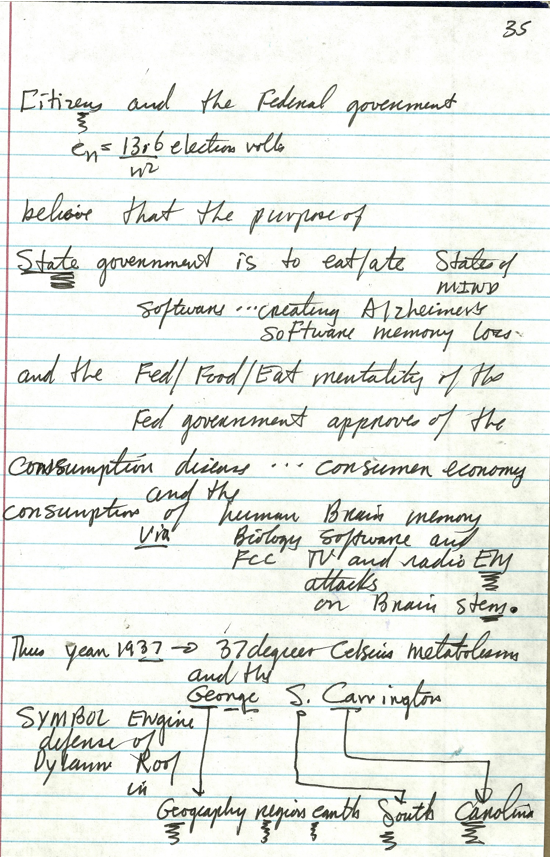 35
Citizens and the Federal government
en = 13.6 / n2 election volts
believe that the purpose of
State government is to eat/ate States of
MIND
software ... creating Alzheimer's
software memory loss
and the Fed/Food/Eat mentality of the
Fed government approves of the
Consumption disease ... consumer economy
and the
consumption of human Brain memory
via Biology software and
FCC TV and radio EM
attacks
on Brain stem.
Thus year 1937 → 37 degrees Celsius metabolism
and the
George S. Carrington
SYMBOL Engine
defense of
Dylann Roof
in
Geography region earth South Carolina